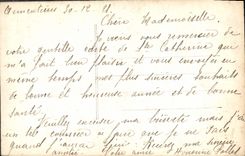 Armentières 30.12.21
Chère Mademoiselle
Je viens vous remercier de
votre gentille carte de Ste Catherine qui
m'a fait bien plaisir et vous envoie en
même temps mes plus sincères souhaits
de bonne et heureuse année et de bonne
santé.
Veuillez excuser ma brièveté mais j'ai
un tel courrier à faire que je ne sais
quand j'aurai fini. Recevez ma sincère
amitié. Votre amie